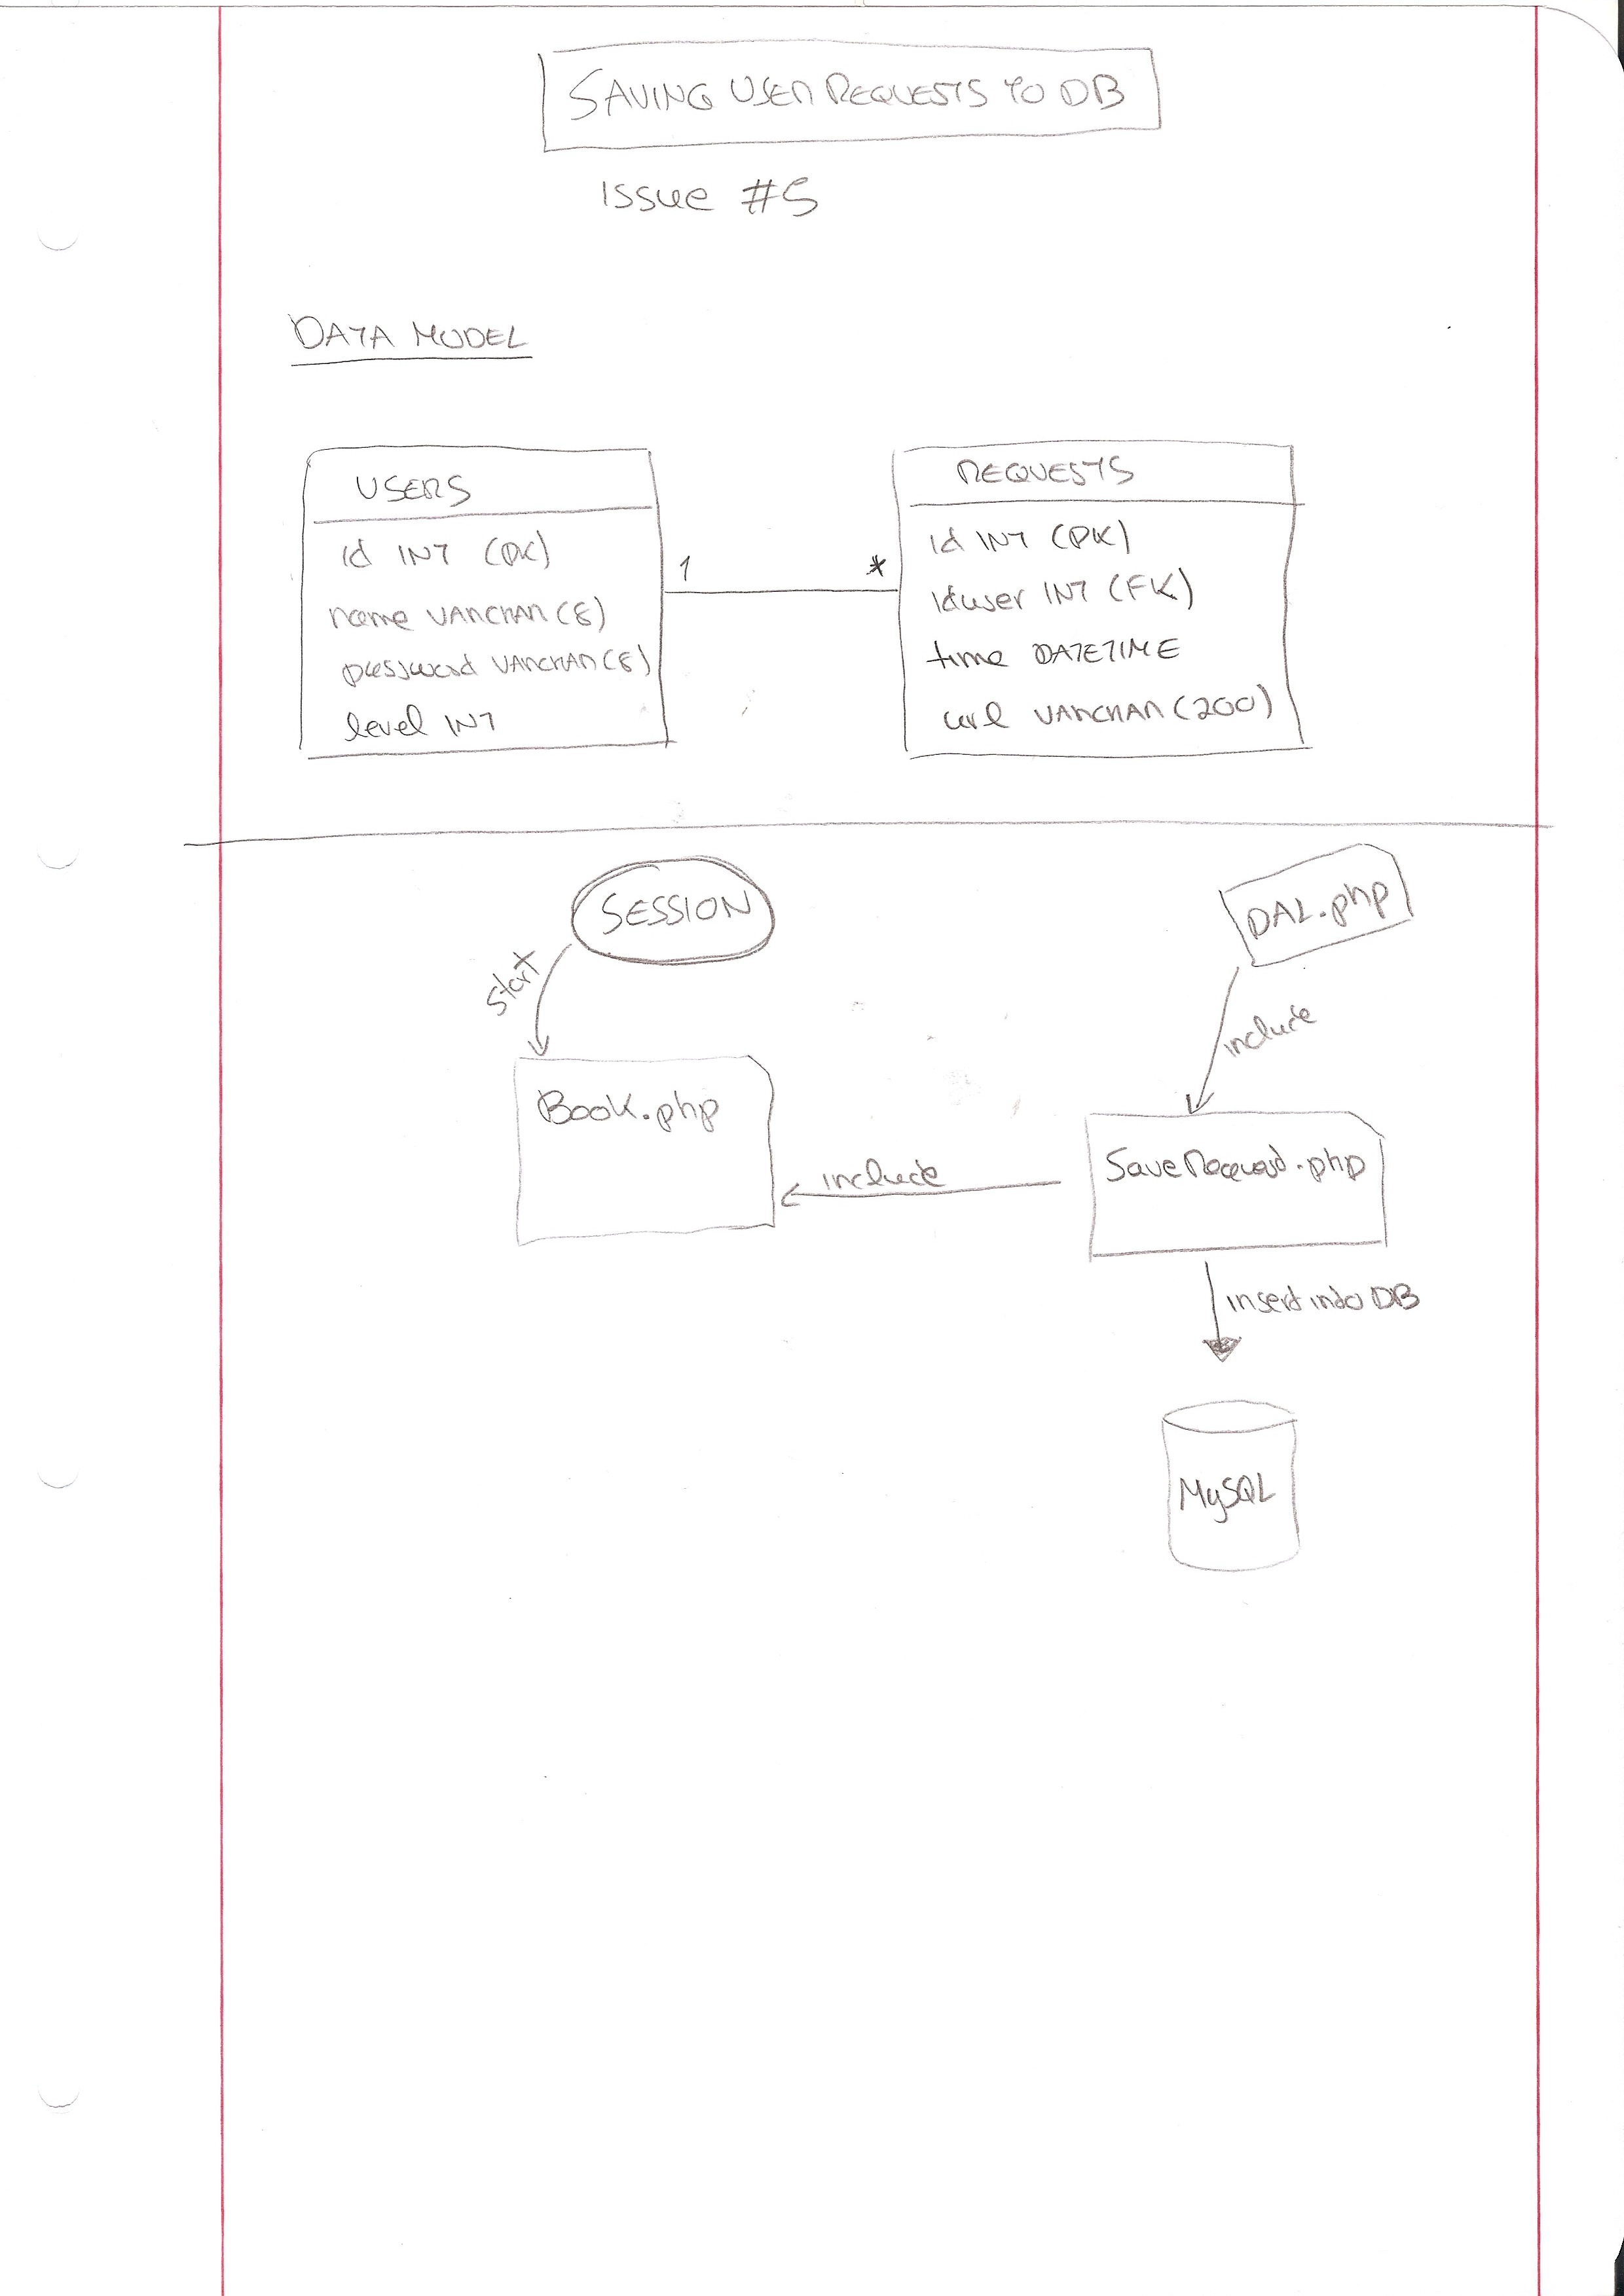 SAVING USER REQUESTS TO DB
Issue #5
DATA MODEL
USERS
id INT (PK)
name VARCHAR (8)
password VARCHAR (8)
level INT
1
*
REQUESTS
id INT (PK)
iduser INT (FK)
time DATETIME
url VARCHAR (200)
SESSION
start
DAL.php
include
Book.php
include
SaveRequest.php
insert into DB
MySQL